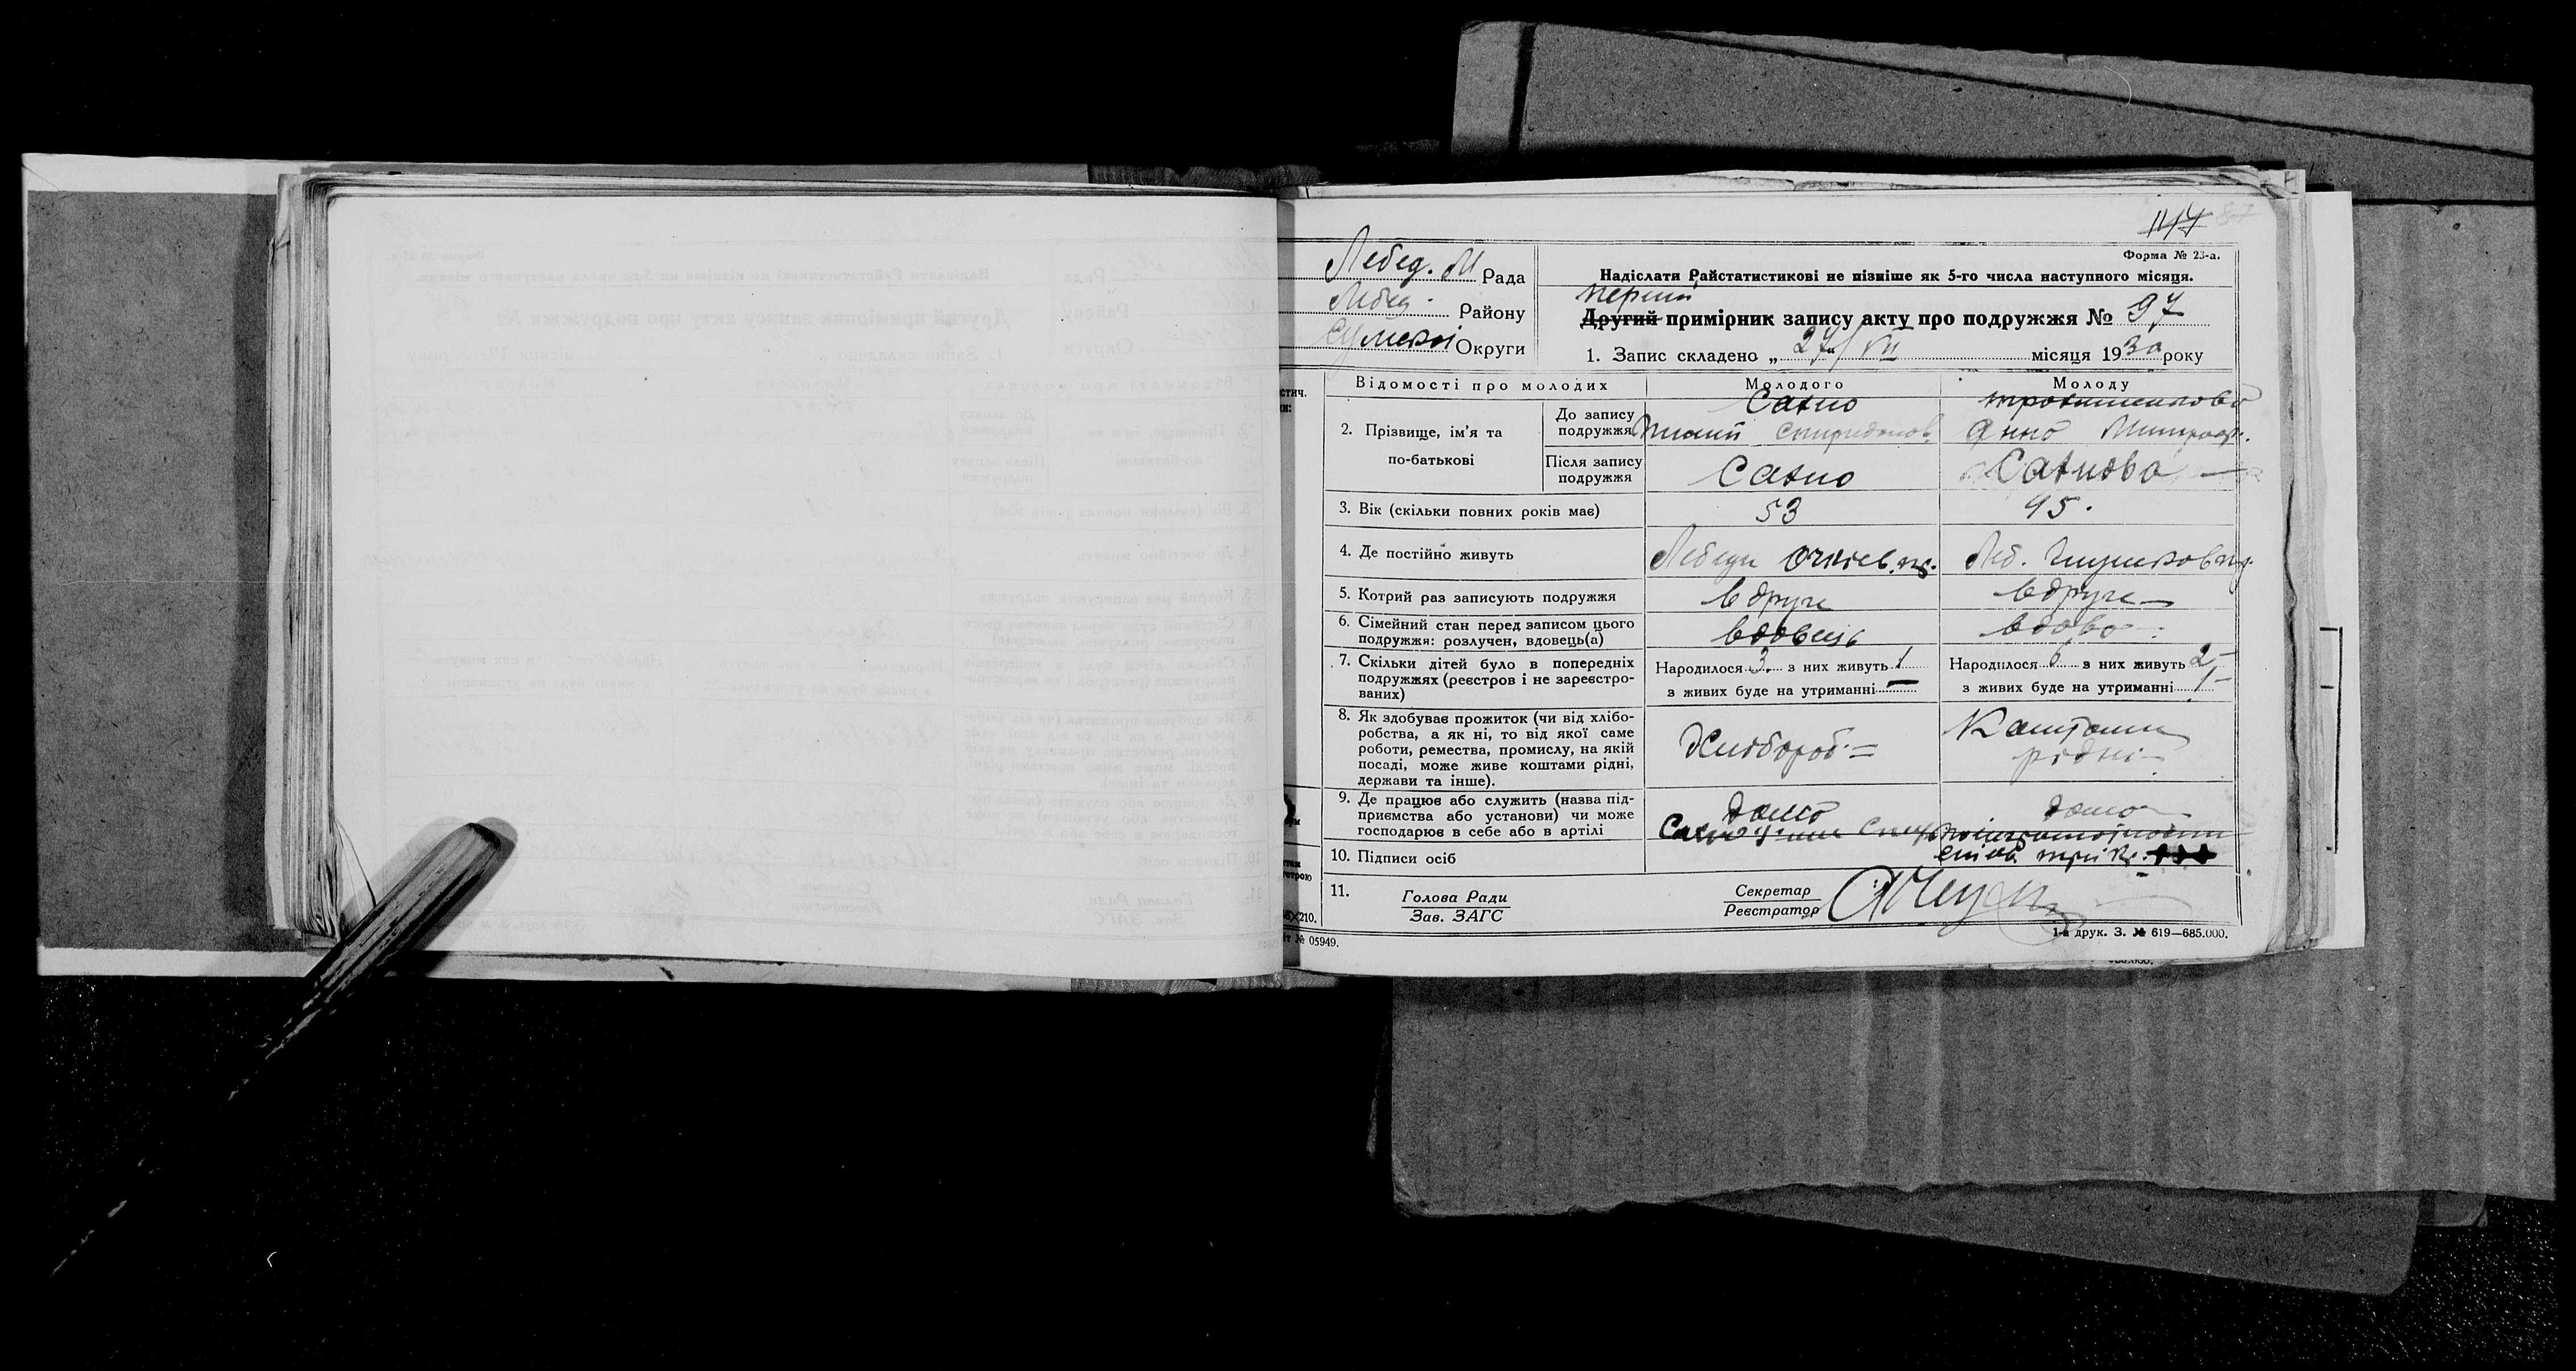 117
Форма № 23-а.
Лебед. М Рада
Лебед. Району
Сумської Округи
Надіслати Райстатистикові не пізніше як 5-го числа наступного місяця.
Перший
Другий примірник запису акту про подружжя № 97
1. Запис складено „27“/VII місяця 1930 року
Відомості про молодих
Молодого
Молоду
2. Прізвище, ім'я та по-батькові
До запису подружжя
Сахно
Спиридонов.
Анна Митроф.
Після запису подружжя
Сахно
Сахнова
3. Вік (скільки повних років має)
53
45.
4. Де постійно живуть
Лебедин
Леб.
5. Котрий раз записують подружжя
вдруге
вдруге
6. Сімейний стан перед записом цього
подружжя: розлучен, вдовець(а)
вдовець
вдова
7. Скільки дітей було в попередніх
подружжях (реєстров і не зареєстро-
ваних)
Народилося 3 з них живуть 1
з живих буде на утриманні —
Народилося 6 з них живуть 2
з живих буде на утриманні 1
8. Як здобуває прожиток (чи від хлібо-
робства, а як ні, то від якої саме
роботи, ремества, промислу, на якій
посаді, може живе коштами рідні,
держави та інше).
Хлібороб
Коштами
рідні
9. Де працює або служить (назва під-
приємства або установи) чи може
господарює в себе або в артілі
дома
дома
10. Підписи осіб
11.
Голова Ради
Зав. ЗАГС
Секретар
Реєстратор
210.
№ 05949.
1-а друк. З. № 619—685.000.